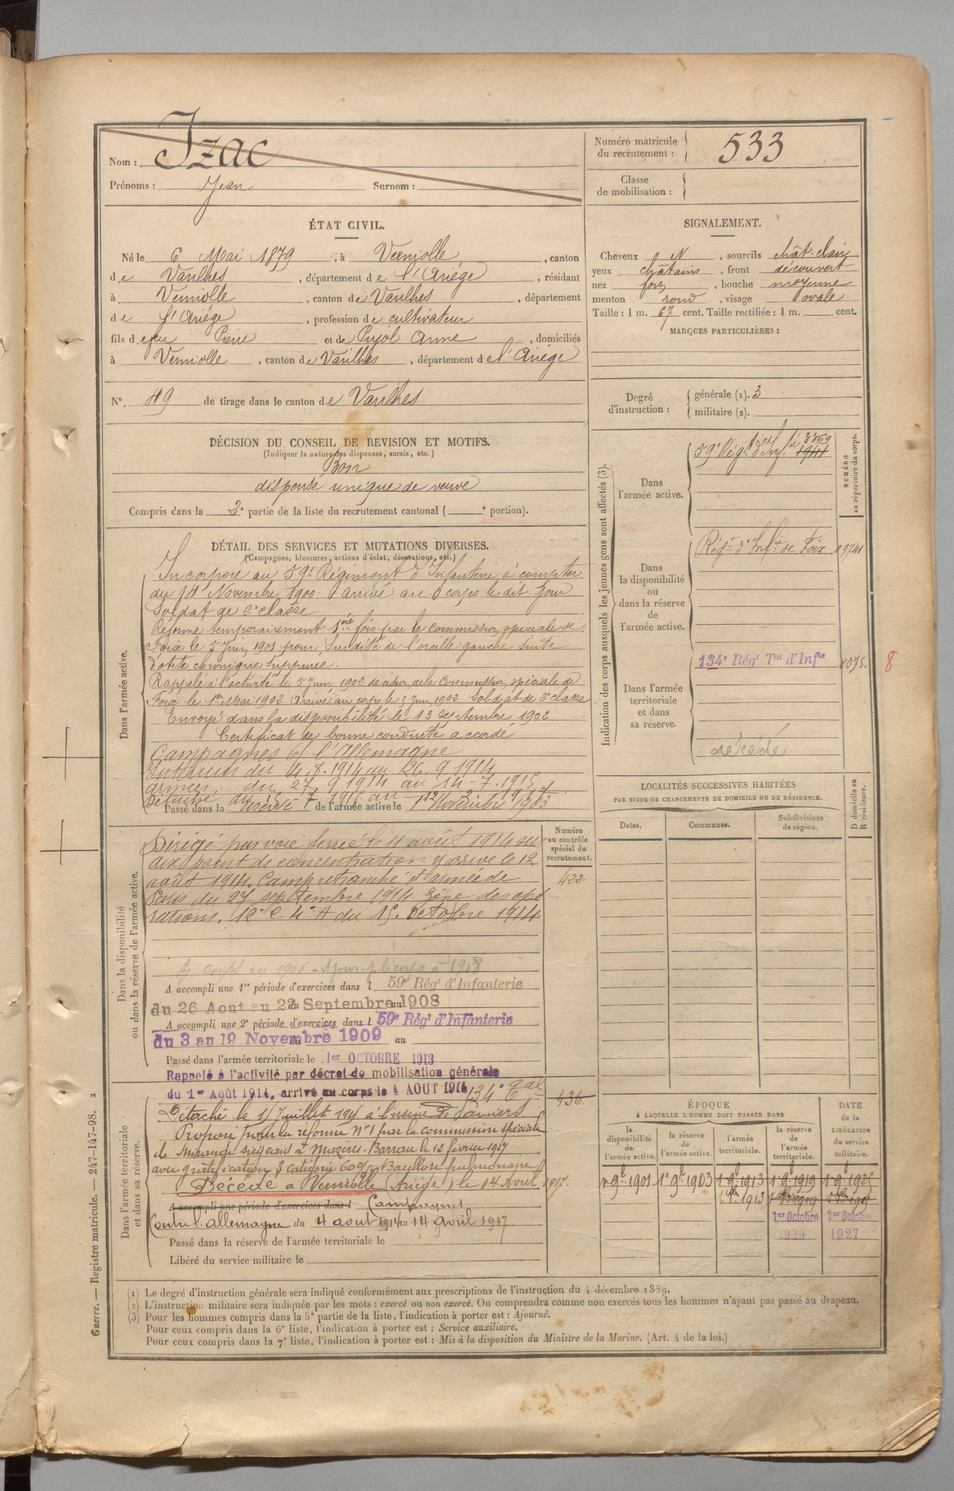 Nom : Izac
Prénoms : Jean Surnom :
Numéro matricule du recrutement : 533
Classe de mobilisation :
ÉTAT CIVIL.
Né le 6 Mai 1879, à Verniolle, canton
de Varilhes, département de l'Ariége, résidant
à Verniolle, canton de Varilhes, département
de l'Ariége, profession de cultivateur
fils de feu Pierre et de Pujol Anne, domiciliés
à Verniolle, canton de Varilhes, département de l'Ariége
N° 49 de tirage dans le canton de Varilhes
SIGNALEMENT.
Cheveux N, sourcils chât clair
yeux châtains, front découvert
nez fort, bouche moyenne
menton rond, visage ovale
Taille : 1 m. 67 cent. Taille rectifiée : 1 m. cent.
MARQUES PARTICULIÈRES :
Degré d'instruction : générale (1). 3
militaire (2).
DÉCISION DU CONSEIL DE REVISION ET MOTIFS.
(Indiquer la nature des dispenses, sursis, etc.)
Bon
dispense unique de veuve
Compris dans la 2e partie de la liste du recrutement cantonal ( e portion).
DÉTAIL DES SERVICES ET MUTATIONS DIVERSES.
(Campagnes, blessures, actions d'éclat, décorations, etc.)
Dans l'armée active.
Incorporé au 59e Régiment d'Infanterie à compter
du 14 Novembre 1900. Arrivé au corps le dit jour
Soldat de 2e classe
Réformé temporairement 1ère fois par la commission spéciale de
Foix le 5 Juin 1901 pour, Surdité de l'oreille gauche suite
d'otite chronique suppurée.
Rappelé à l'activité le 5 Juin 1902 décision de la Commission spéciale de
Foix le 1er Mai 1902 Arrivé au corps le 5 Juin 1902 Soldat de 2e classe
Envoyé dans la disponibilité le 13 septembre 1902
Certificat de bonne conduite accordé
Campagnes c/ l'Allemagne
Intérieur du 4.8.1914 au 26.9.1914
armées, du 27.9.1914 au 14-7.1915
Passé dans la réserve de l'armée active le 1er Novembre 1903
Dans la disponibilité ou dans la réserve de l'armée active.
Dirigé par voie ferrée le 11 août 1914 sur
point de concentration y arrivé le 12
août 1914. Camp retranché et armée de
Paris du 27 septembre 1914 Zône des opé
rations. 12e C. 4e A du 15 Octobre 1914
Numéro au contrôle spécial du recrutement.
433
A accompli une 1re période d'exercices dans l 59e Régt d'Infanterie
du 26 Aout au 22 Septembre 1908
A accompli une 2e période d'exercices dans l 59e Régt d'Infanterie
du 3 au 19 Novembre 1909 au
Passé dans l'armée territoriale le 1er OCTOBRE 1913
Rappelé à l'activité par décret de mobilisation générale
du 1er Août 1914, arrivé au corps le 4 AOUT 1914 134e tal
Dans l'armée territoriale et dans sa réserve.
436
Détaché le 15 Juillet 1915 à l'usine Pamiers
Proposé pour la réforme N°1 par la commission spéciale
de Mirande siégeant à Mazères-Barran le 12 février 1917
avec gratification 5e catégorie 60% Bacillose pulmonaire
Décédé à Verniolle (Ariége) le 14 Avril 1917.
A accompli une période d'exercices dans l Campagnes
Contre l'allemagne du 4 aout 1914 au 14 avril 1917.
Passé dans la réserve de l'armée territoriale le
Libéré du service militaire le
Indication des corps auxquels les jeunes gens sont affectés (3).
NUMÉRO au répertoire du corps.
Dans l'armée active.
59e Régt d'Infie 3369
Dans la disponibilité ou dans la réserve de l'armée active.
Régt d'Infie de Foix
Dans l'armée territoriale et dans sa réserve.
134e Régt Tal d'Infie 1075. 8
décédé
LOCALITÉS SUCCESSIVES HABITÉES
PAR SUITE DE CHANGEMENTS DE DOMICILE OU DE RÉSIDENCE.
Dates. Communes. Subdivisions de région. D domicile ou R résidence.
ÉPOQUE
À LAQUELLE L'HOMME DOIT PASSER DANS
DATE de la LIBÉRATION du service militaire.
la disponibilité de l'armée active. la réserve de l'armée active. l'armée territoriale. la réserve de l'armée territoriale.
1er 9bre 1901 1er 9bre 1903 1er 9bre 1913 1er 9bre 1919 1er 9bre 1925
1er Octobre 1920 1er Octobre 1927
(1) Le degré d'instruction générale sera indiqué conformément aux prescriptions de l'instruction du 4 décembre 1889.
(2) L'instruction militaire sera indiquée par les mots : exercé ou non exercé. On comprendra comme non exercés tous les hommes n'ayant pas passé au drapeau.
(3) Pour les hommes compris dans la 5e partie de la liste, l'indication à porter est : Ajourné.
Pour ceux compris dans la 6e liste, l'indication à porter est : Service auxiliaire.
Pour ceux compris dans la 7e liste, l'indication à porter est : Mis à la disposition du Ministre de la Marine. (Art. 4 de la loi.)
Guerre. — Registre matricule. — 247-147-98. 2